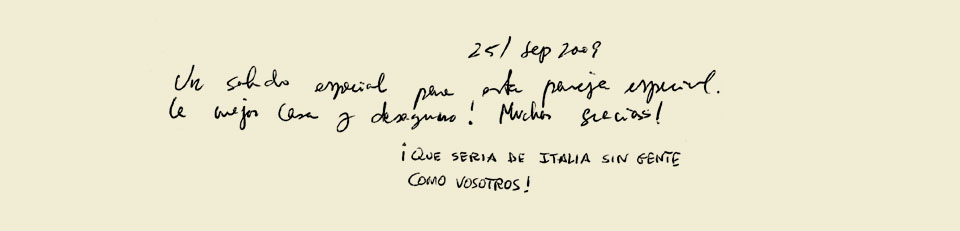 25/ Sep 2009
Un saludo especial para esta pareja especial.
La mejor casa y desayuno! Muchas gracias!
¡QUE SERIA DE ITALIA SIN GENTE
COMO VOSOTROS!